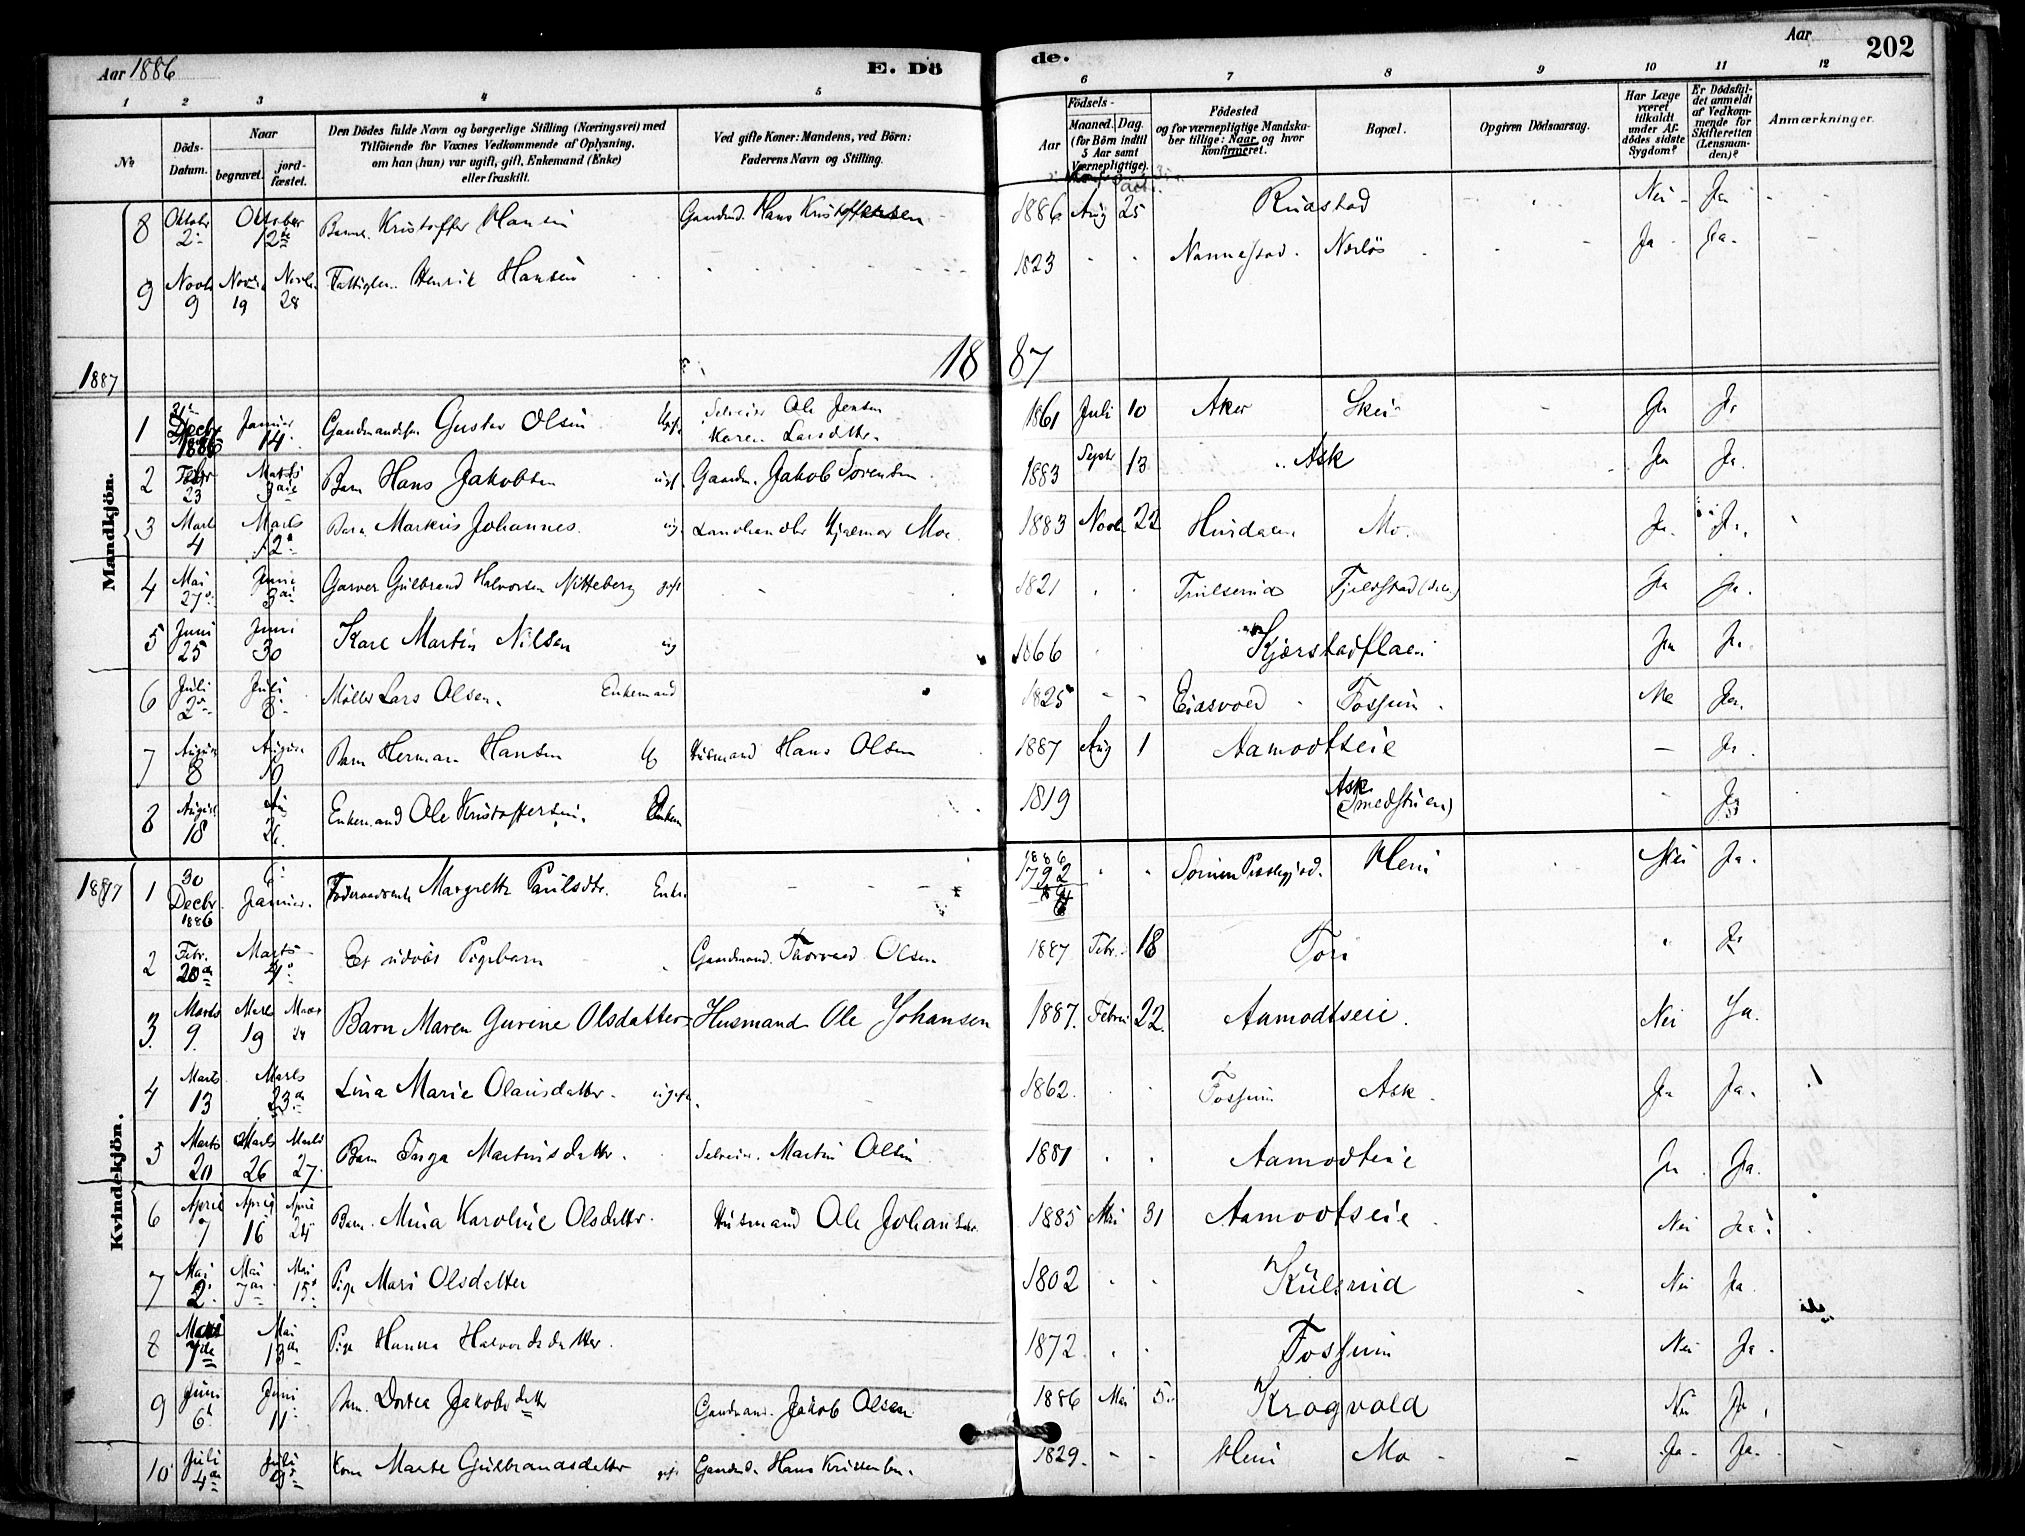 Aar 1886
E. Dö
de.
Aar
202
1 2 3 4 5 6 7 8 9 10 11 12
No
Döds-Datum.
Naar
begravet.
jord-fæstet.
Den Dödes fulde Navn og borgerlige Stilling (Næringsvei) med
Tilföiende for Voxnes Vedkommende af Oplysning,
om han (hun) var ugift, gift, Enkemand (Enke)
eller fraskilt.
Ved gifte Koner: Mandens, ved Börn:
Faderens Navn og Stilling.
Födsels-
Aar
Maaned. Dag
(for Börn indtil
5 Aar samt
Værnepligtige).
Födested
og for værnepligtige Mandska-
ber tillige: Naar og hvor
konfirmeret.
Bopæl.
Opgiven Dödsaarsag.
Har Læge
været
tilkaldt
under Af-
dödes sidste
Sygdom?
Er Dödsfal-
det anmeldt
af Vedkom-
mende for
Skifteretten
(Lensman-
den)?
Anmærkninger.
8 Oktobr 2 Oktober 12te Kristoffer Hansen Gaardmd. Hans Kristoffersen 1886 Aug 25 Rudstad Nei Ja
9 Novbr 9 19 Novbr 28 Henrik Hansen 1823 Nannestad Ja Ja
1887
1887
Mandkjön.
1 31 Decbr 1886 Januar 14 Gustav Olsen Ole Jensen Karen Larsdttr. 1861 Juli 10 Aker Ja Ja
2 Febr 23 Marts Barn Hans Jakobsen ugf. Gaardm. Jakob Sorensen 1883 Septr 13 Ask Ja Ja.
3 Marts 4 Marts 12 Barn Markus Johannes ug. Landhandlr Hjalmar Moe 1883 Novbr 22 Hurdalen Mo. Ja. Ja.
4 Mai 27 Juni 3die Garver Gulbrand Halvorsen Nitteberg gift 1821 Ja Ja.
5 Juni 25 Juni 30 Karl Martin Nilsen ug 1866 Kjærstadflaen Ja Ja.
6 Juli 2 Juli 8 Møller Lars Olsen. Enkemand 1825 Eidsvold Fossum Ja.
7 August 8 August 10 Barn Herman Hansen Ug Husmand Hans Olsen 1887 Aug 1 Aamodtseie Ja.
8 August 18 Aug 26. Enkemand Ole Kristoffersen. Enkem 1819 Ask (Smedstuen) Ja
1887
Kvindekjön.
1 30 Decbr. 1886 Januar. Margrethe Paulsdtr. Enke. 1792 Heni Nei Ja.
2 Febr. 20de Marts Et udöbt Pigebarn Gaardmand. Thorvald Olsen 1887 Febr. 18 Ja
3. Marts 9. Marts 19 Marts Barn Maren Gurine Olsdatter Husmand Ole Johansen 1887. Febru 22. Aamodtseie. Nei Ja.
4 Marts 13 Marts 23de Lina Marie Olausdatter. ugift. 1862. Fossum Ask. Ja Ja.
5 Marts 20 Marts 26 Marts 27. Barn Inga Martinsdatter. Selveier. Martin Olsen 1881 Aamodteie Ja. Ja.
6 April 7 April 16 April 24 Barn. Mina Karoline Olsdatter. Husmand Ole Johansen. 1885 Mai 31 Aamodtseie. Nei Ja.
7 Mai 2. Mai 7de Mai 15. Pige Mari Olsdatter 1802 Kulsrud Nei Ja
8 7de Mai 13de Pige Hanna Halvordsdatter. 1872. Fossum Nei Ja.
9 Juni 6 Juni 11 Barn. Dortea Jakobsdattr Gaardmand. Jakob Olsen 1886 Mai 5. Krogvold Nei Ja.
10 Juli 4de Juli Kone Marte Gulbrandsdatter gift Gaardmd. Hans Kristensen. 1829. Heni Mo Ja Ja.